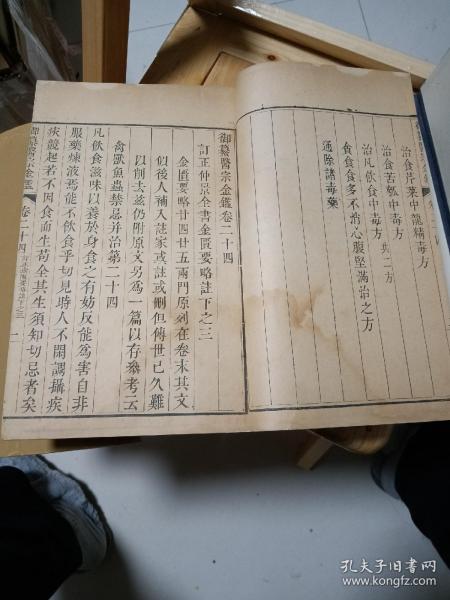 治食芹菜中龍精毒方
治食苦瓠中毒方
治凡飲食中毒方 共二方
貪食食多不消心腹堅滿治之方
通除諸毒藥
御纂醫宗金鑑卷二十四
訂正仲景全書金匱要略註下之三
金匱要略廿四廿五兩門原列在卷末其文
似後人補入註家或註或刪但傳世已久難
以削去茲仍附原文另為一篇以存參考云
禽獸魚蟲禁忌并治第二十四
凡飲食滋味以養於身食之有妨反能為害自非
服藥煉液焉能不飲食乎切見時人不閑調攝疾
疢競起若不因食而生苟全其生須知切忌者矣
御纂醫宗金鑑 卷二十四 訂正金匱要略註下之三 一
孔夫子旧书网
www.kongfz.com